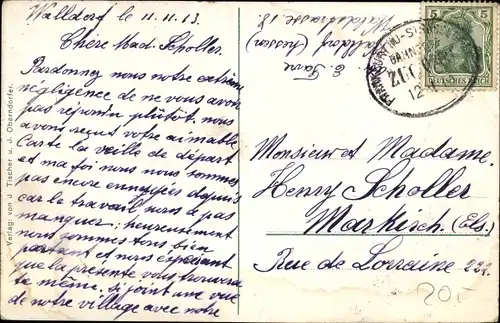 Walldorf le 11.11.13.
Chère Mad. Scholler
Pardonnez nous notre extrême
négligence de ne vous avoir
pas répondu plutôt, nous
avons reçut votre aimable
Carte la veille de départ
et ma foi nous nous sommes
pas encore ennuyées depuis
car le travail, nous a pas
manquer; heureusement
nous sommes tous bien
portant et nous espérons
que la présente vous trouvera
de même, si joint une vue
de notre village avec notre
Walldorf (Hessen)
Verlag: von J. Tischer u. J. Oberndorfer.
5 5
DEUTSCHES REICH
FRANKFURT
BAHNPOST
ZUG
Monsieur et Madame
Henry Scholler
Markirch (Els.
Rue de Lorraine 22
20,-